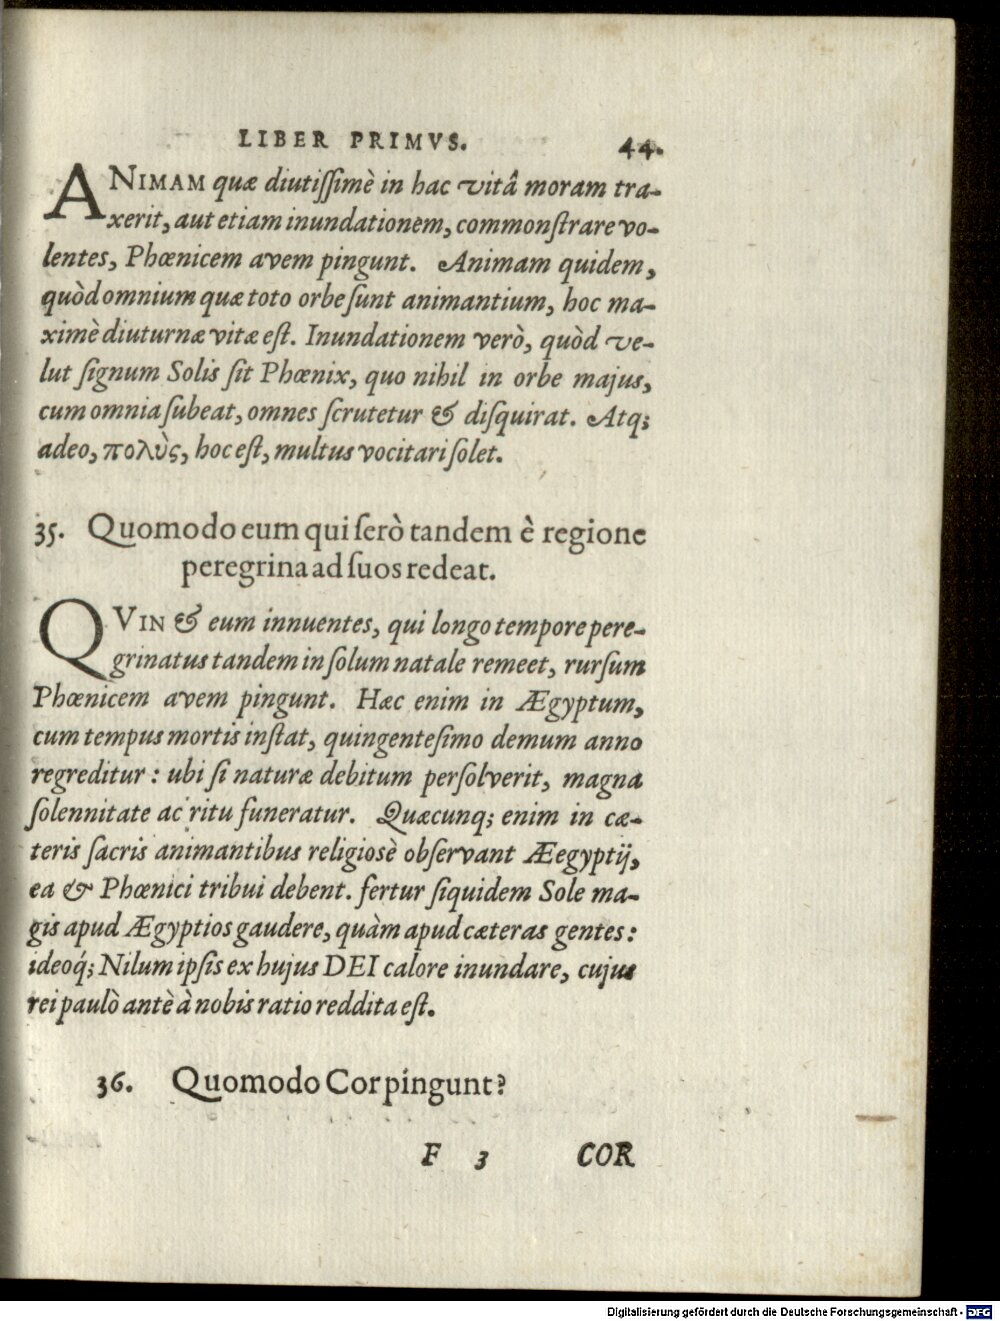 LIBER PRIMVS. 44.
ANIMAM quæ diutiſſimè in hac vitâ moram tra-
xerit, aut etiam inundationem, commonſtrare vo-
lentes, Phœnicem avem pingunt. Animam quidem,
quòd omnium quæ toto orbe ſunt animantium, hoc ma-
ximè diuturnæ vitæ eſt. Inundationem verò, quòd ve-
lut ſignum Solis ſit Phœnix, quo nihil in orbe majus,
cum omnia ſubeat, omnes ſcrutetur & diſquirat. Atq;
adeo, πολὺς, hoc eſt, multus vocitari ſolet.
35. Quomodo eum qui ſerò tandem è regione
peregrina ad ſuos redeat.
QVIN & eum innuentes, qui longo tempore pere-
grinatus tandem in ſolum natale remeet, rurſum
Phœnicem avem pingunt. Hæc enim in Ægyptum,
cum tempus mortis inſtat, quingenteſimo demum anno
regreditur: ubi ſi naturæ debitum perſolverit, magna
ſolennitate ac ritu funeratur. Quæcunq; enim in cæ-
teris ſacris animantibus religiosè obſervant Æegyptij,
ea & Phœnici tribui debent. fertur ſiquidem Sole ma-
gis apud Ægyptios gaudere, quàm apud cæteras gentes:
ideoq́; Nilum ipſis ex hujus DEI calore inundare, cujus
rei paulò antè à nobis ratio reddita eſt.
36. Quomodo Cor pingunt?
F 3 COR
Digitalisierung gefördert durch die Deutsche Forschungsgemeinschaft - DFG